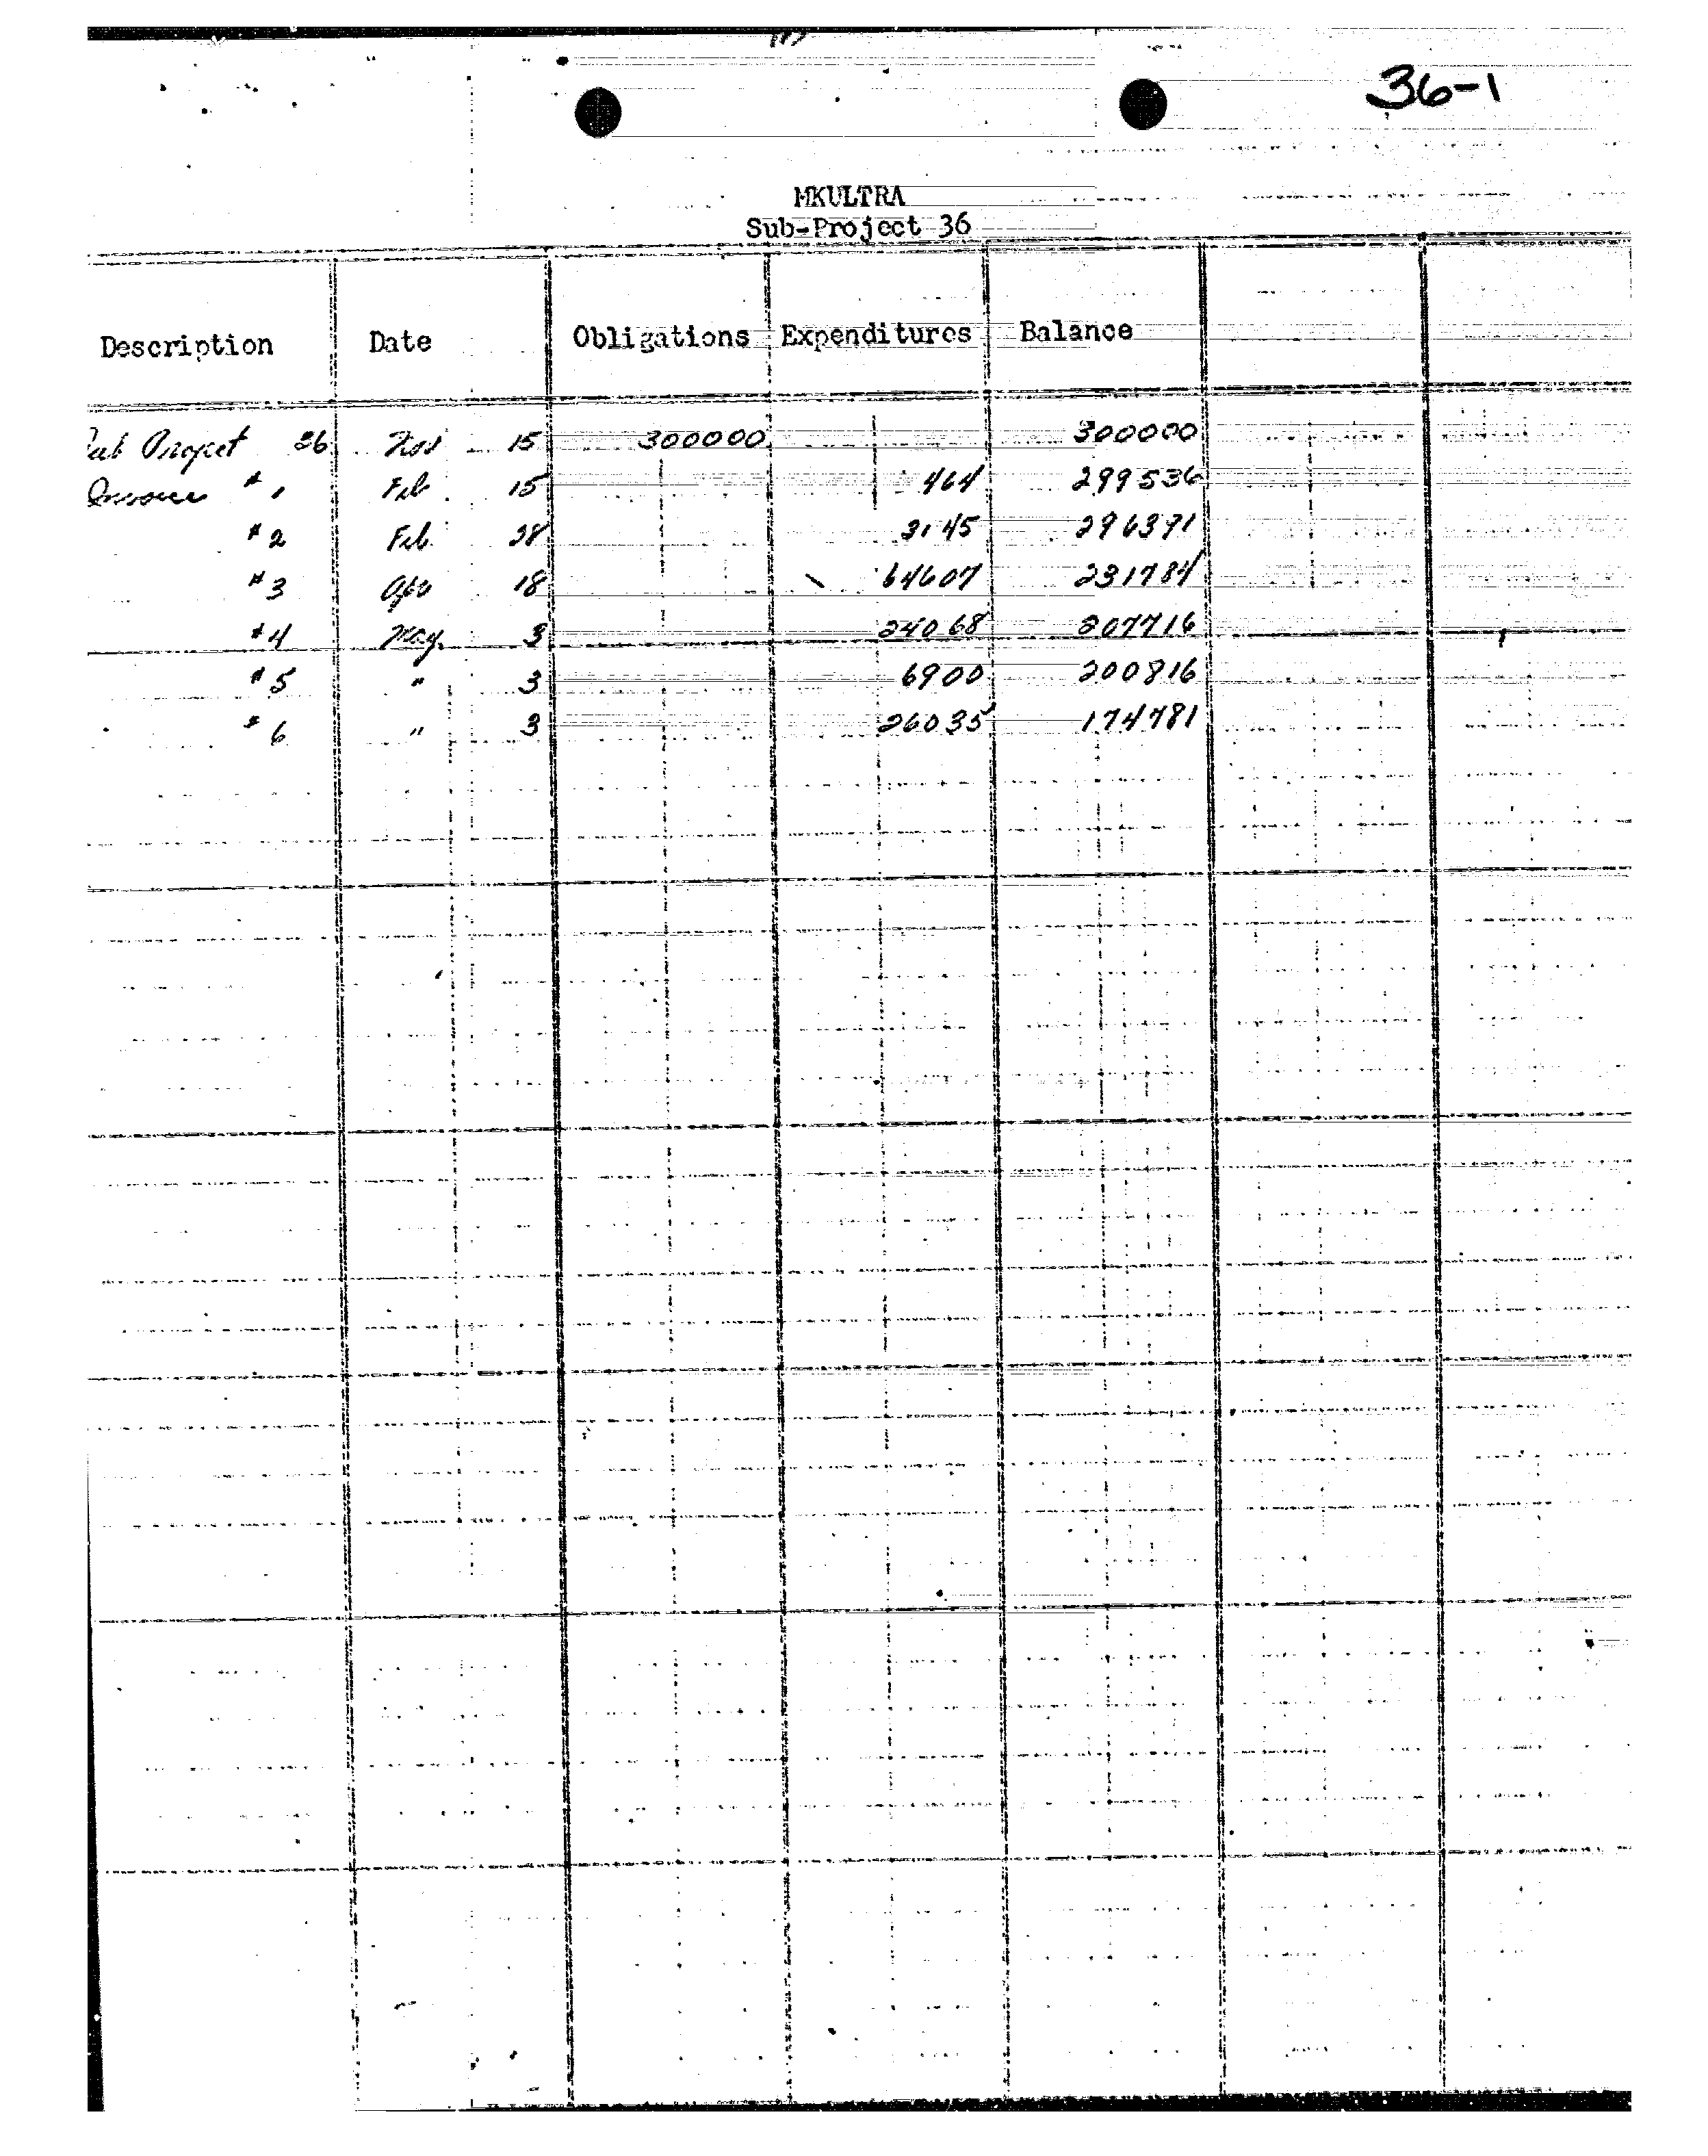 36-1
MKULTRA
Sub-Project 36
Description Date Obligations Expenditures Balance
Sub Project 36 Nov 15 300000 300000
Invoice #1 Feb 15 464 299536
#2 Feb. 28 3145 296391
#3 Apr 18 64607 231784
#4 May 3 24068 207716
#5 " 3 6900 200816
#6 " 3 26035 174781